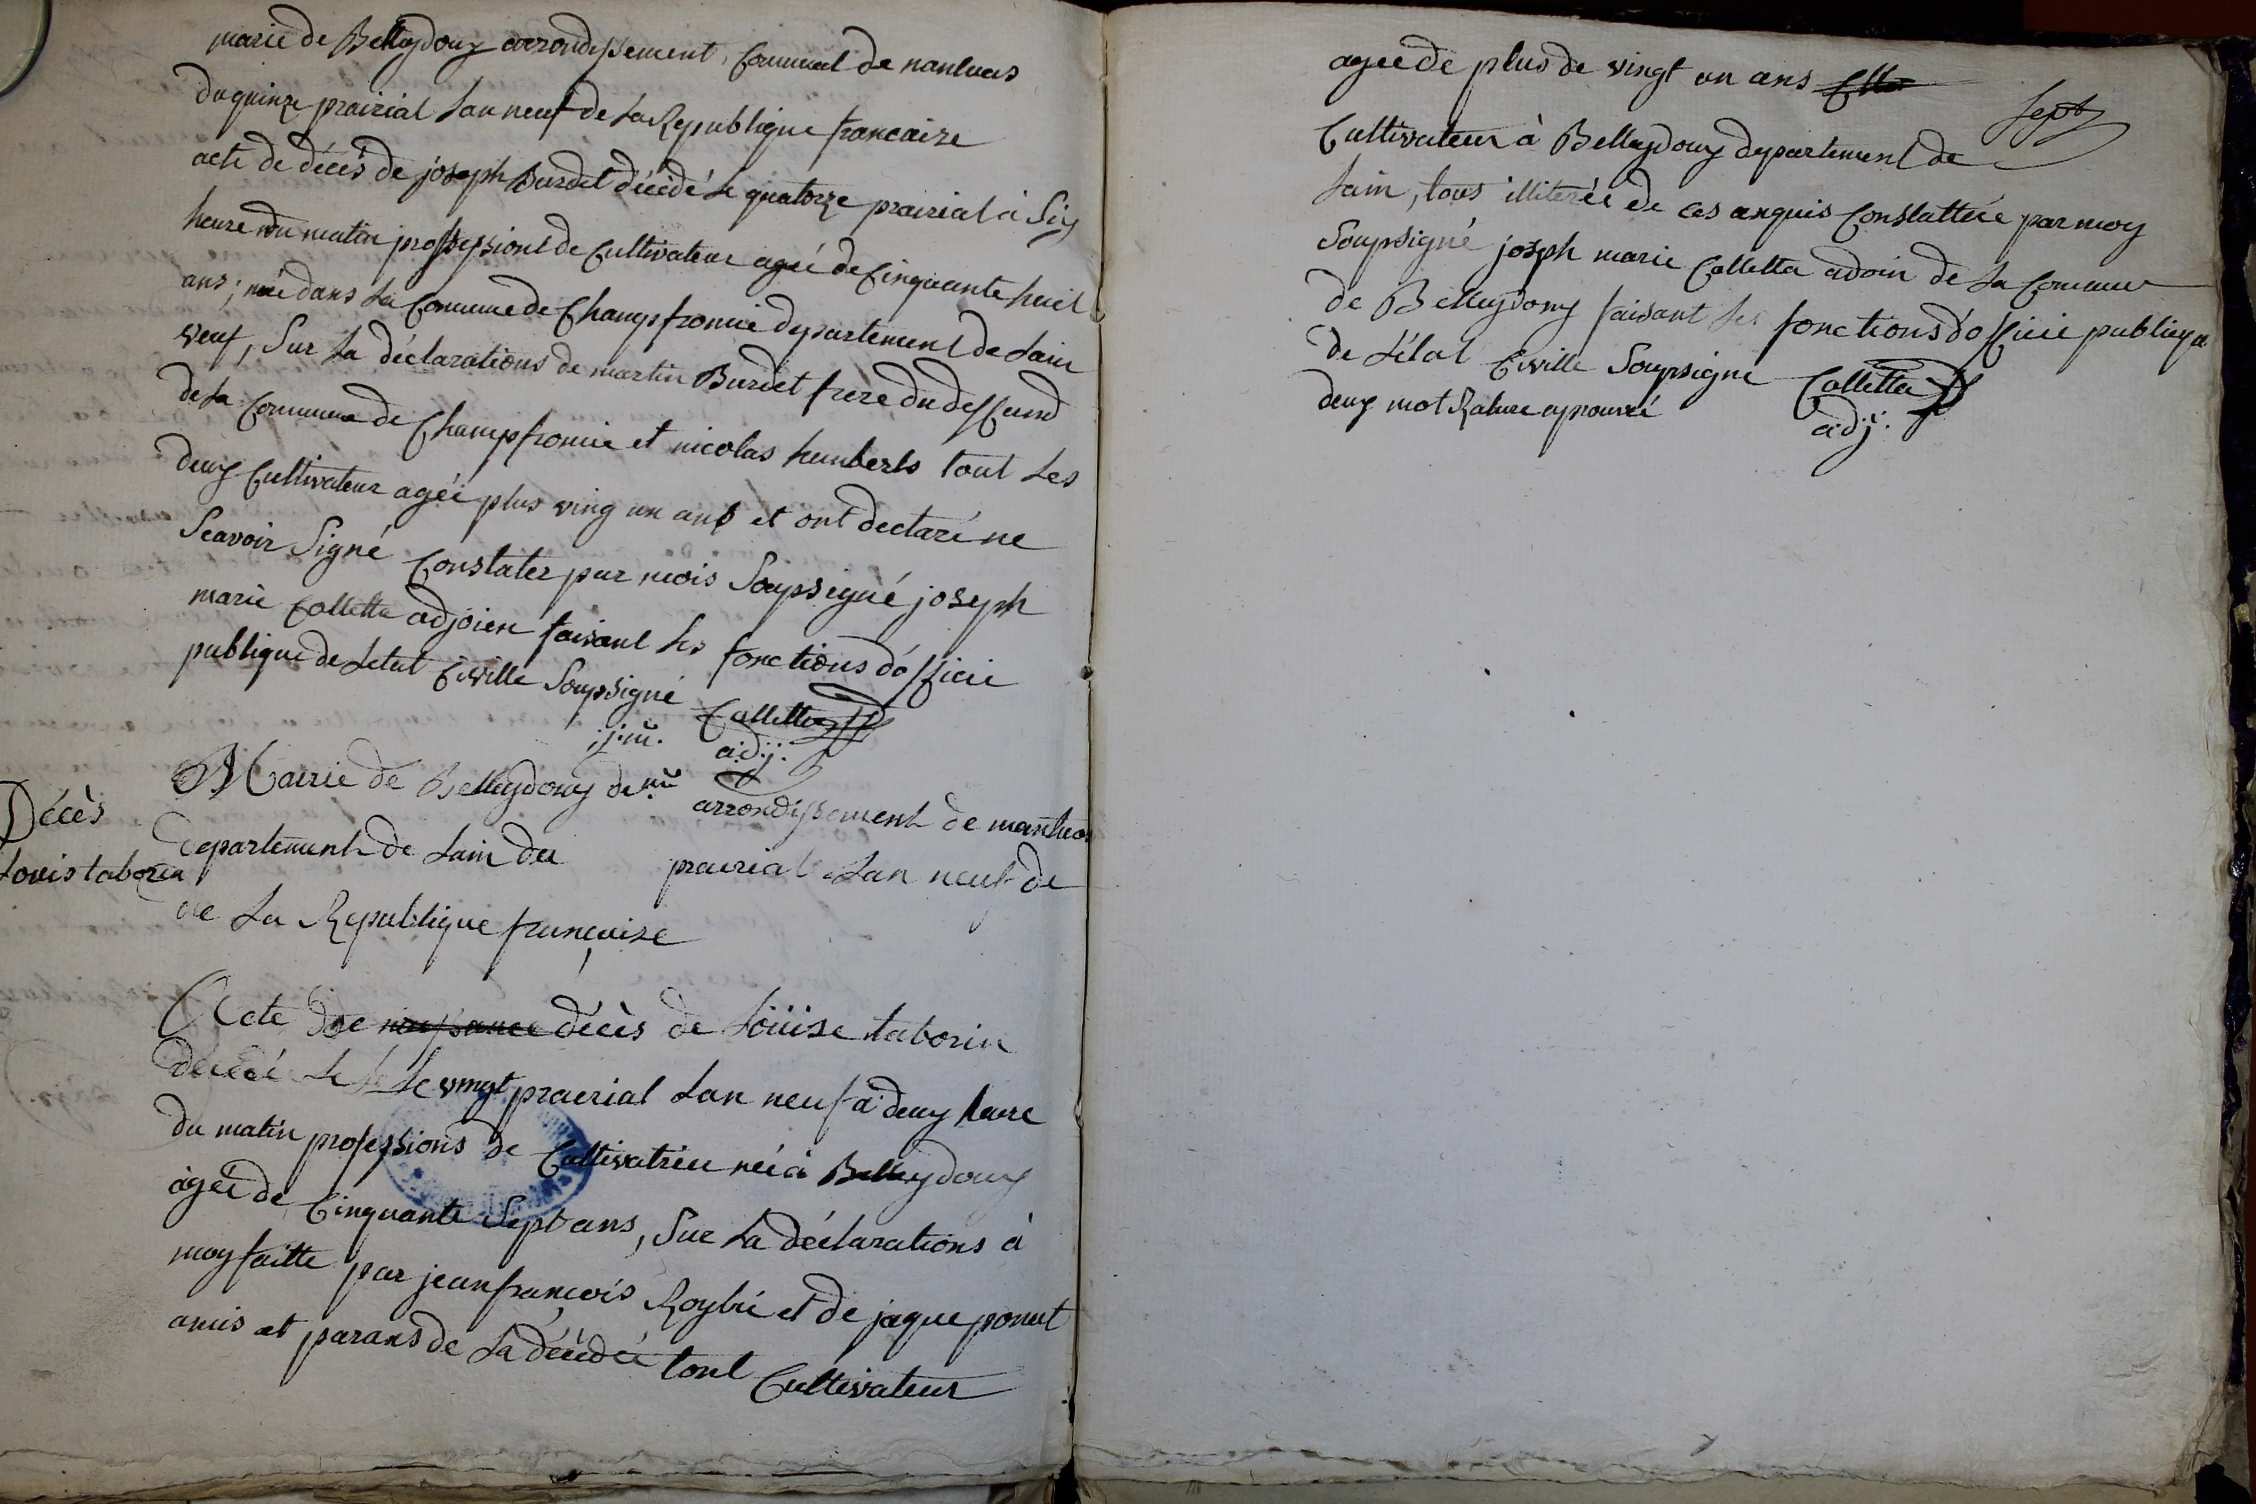 marie de Belleydoux arrondissement, communal de nantuas
du quinze prairial Lan neuf de La Republique francaize
acte de décès de joseph Burdet décédé Le quatorze prairial à Six
heure du matin professions de Cultivateur agée de Cinquante huit
ans ; née dans La Commune de Champfromie departement de Lain
veuf, Sur La déclarations de martin Burdet frere du deffund
de La Commune de Champfromie et nicolas humberts tout Les
deux Cultivateur agée plus ving un ans et ont declaré ne
Scavoir Signé Constater par mois Soupssigné joseph
marie Colletta adjoien faisant Les fonctions d'officie
publique de Letat Civille Soupssigné
j.m. Colletta
adj.
Mairie de Belleydoux arrondissement de nantuas
Décès
Louis taborin
Departement de Lain du prairial Lan neuf de
de La Republique françaize
Acte de naissance décès de Loüise taborin
décédé Le Le vingt praerial Lan neuf a deux heure
du matin professions de Cultivatrice née à Belleydoux
agée de Cinquante Sept ans, Sur La déclarations à
moy faitte par jean françois Roybié et de jaque ponut
amis et parans de La décédéé tout Cultivateur
agée de plus de vingt un ans
Sept
Cultivateur à Belleydoux departement de
Lain, tous illiterée de ces anquis Constattée par moy
Soupssigné joseph marie Colletta adoin de La Commune
de Belleydoux faisant Les fonctions d'officie publique
de L'état Civille Soupssigne Colletta
deux mot Rature aprouvé adj.